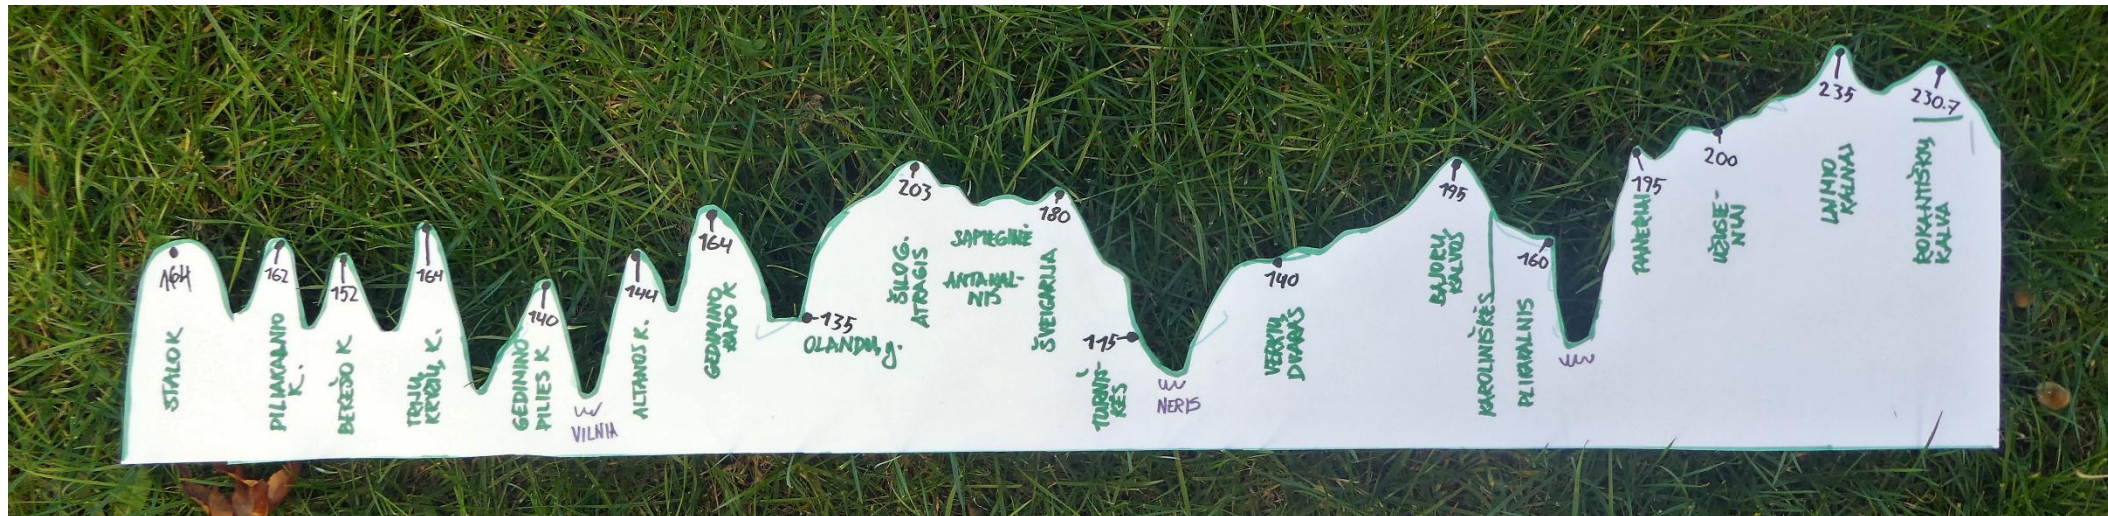 164
STALO K
162
PILIAKALNIO
K.
152
BEKEŠO K
164
TRIJŲ
KRYŽIŲ K.
140
GEDIMINO
PILIES K
VILNIA
144
ALTANOS K.
164
GEDIMINO
KAPO K
135
OLANDŲ g.
203
ŠILO G.
ATRAGIS
SAPIEGINĖ
ANTAKAL-
NIS
180
ŠVEICARIJA
115
TURNIŠ-
KĖS
NERIS
140
VERKIŲ
DVARAS
195
BAJORŲ
KALVOS
KAROLINIŠKĖS
160
PLIKAKALNIS
195
PANERIAI
200
UŽUSIE-
NIAI
235
LAIMIO
KALNAS
230.7
ROKANTIŠKIŲ
KALVA